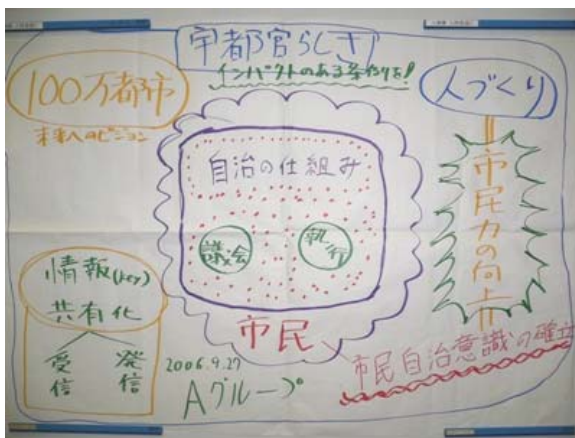 宇都宮らしさ
インパクトのある条例を!
100万都市
未来へのビジョン
人づくり
市民力の向上
自治の仕組み
議会
執行
市民
情報(key)
共有化
受信
発信
2006.9.27
Aグループ
市民自治意識の確立